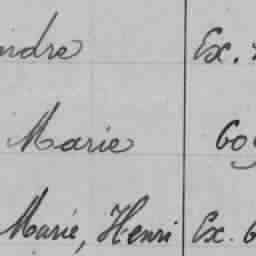 ndre Ex.
Marie
Marie, Henri Ex. 6